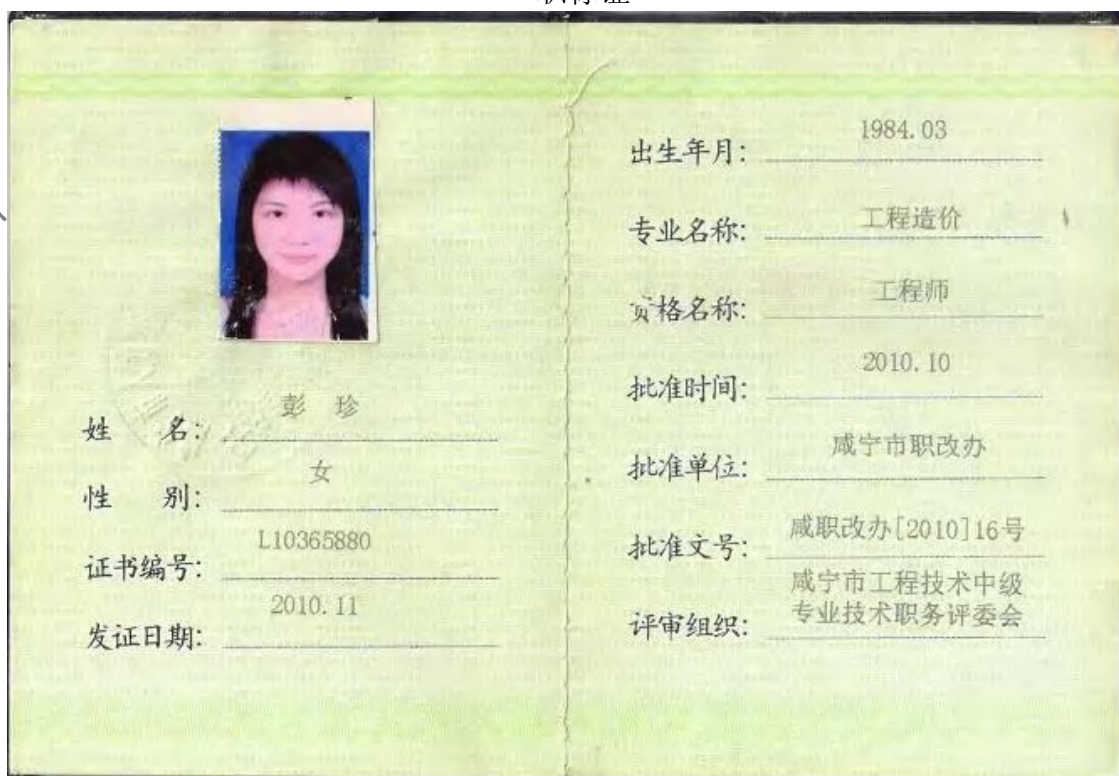 姓 名: 彭 珍
性 别: 女
证书编号: L10365880
发证日期: 2010.11
出生年月: 1984.03
专业名称: 工程造价
资格名称: 工程师
批准时间: 2010.10
批准单位: 咸宁市职改办
批准文号: 咸职改办[2010]16号
评审组织: 咸宁市工程技术中级
专业技术职务评委会